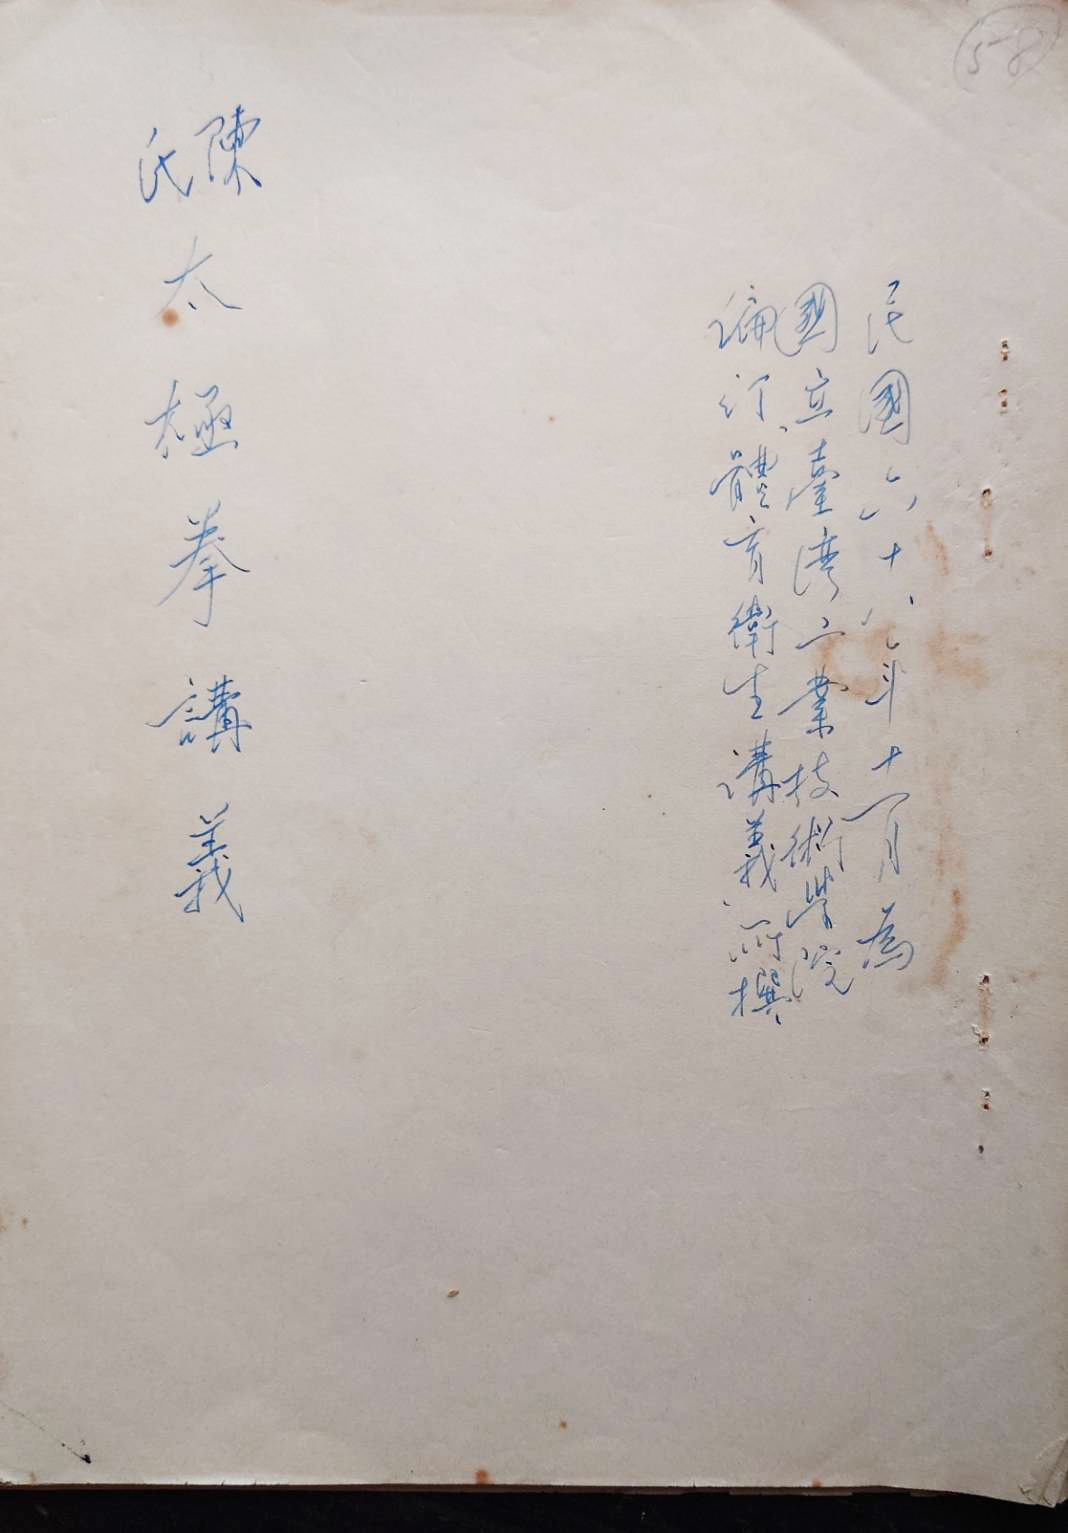 5-8
民國六十八年十一月為
國立臺湾工業技術學院
編訂體育衛生講義所撰
陳氏太極拳講義